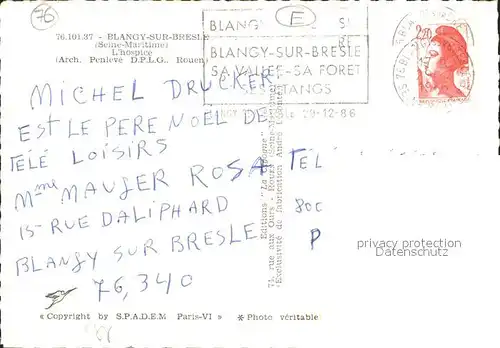 76
76.101.37 - BLANGY-SUR-BRESLE
(Seine-Maritime)
L'hospice
(Arch. Penlevé D.P.L.G. Rouen)
E
BLANGY
BLANGY-SUR-BRESLE
SA VALLEE-SA FORET
ETANGS
29-12-86
2,20
MICHEL DRUCKER
EST LE PERE NOEL DE
TÉLÉ LOISIRS
Mme MAUGER ROSA TEL
15 RUE DALIPHARD
BLANGY SUR BRESLE
76,340
80c
P
Editions "La
71, rue aux Ours - Rouen
(Exclusivité de fabrication André
privacy protection
Datenschutz
« Copyright by S.P.A.D.E.M Paris-VI » * Photo véritable